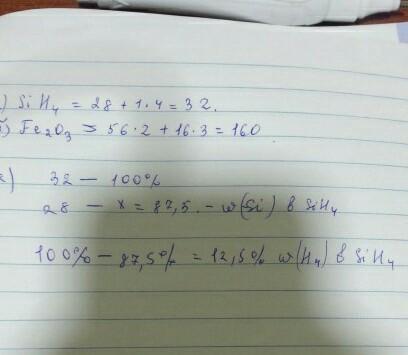 ) SiH₄ = 28 + 1·4 = 32.
б) Fe₂O₃ = 56·2 + 16·3 = 160
а) 32 — 100%
28 — x = 87,5. - w(Si) в SiH₄
100% - 87,5% = 12,5% w(H₄) в SiH₄